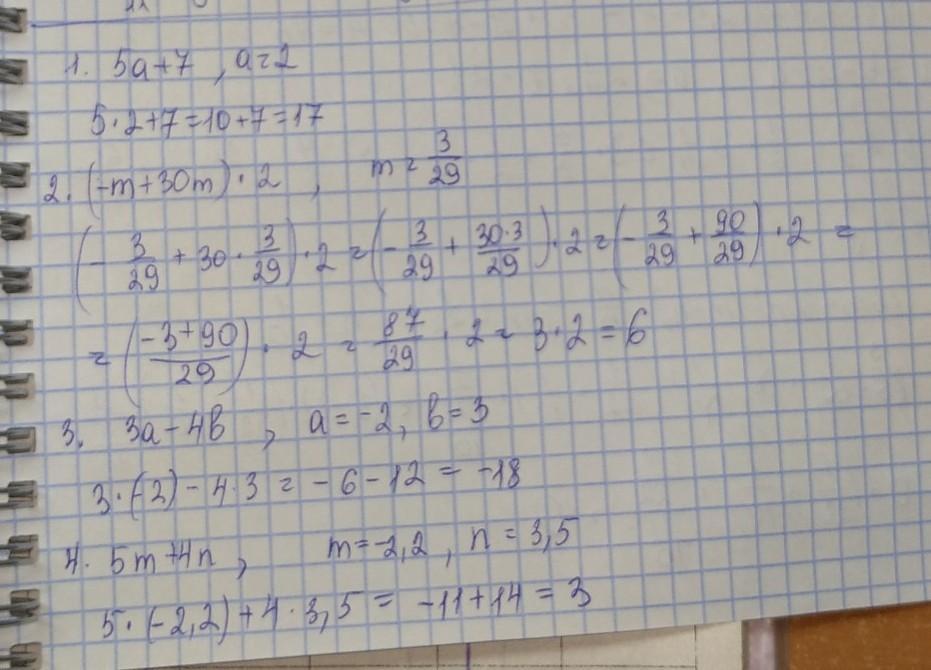 1. 5a+7 , a=2
5·2+7=10+7=17
2. (-m+30m)·2 , m=3/29
(-3/29+30·3/29)·2=(-3/29+30·3/29)·2=(-3/29+90/29)·2=
=(-3+90/29)·2=87/29·2=3·2=6
3. 3a-4b , a=-2, b=3
3·(-2)-4·3=-6-12=-18
4. 5m+4n, m=-2,2, n=3,5
5·(-2,2)+4·3,5=-11+14=3